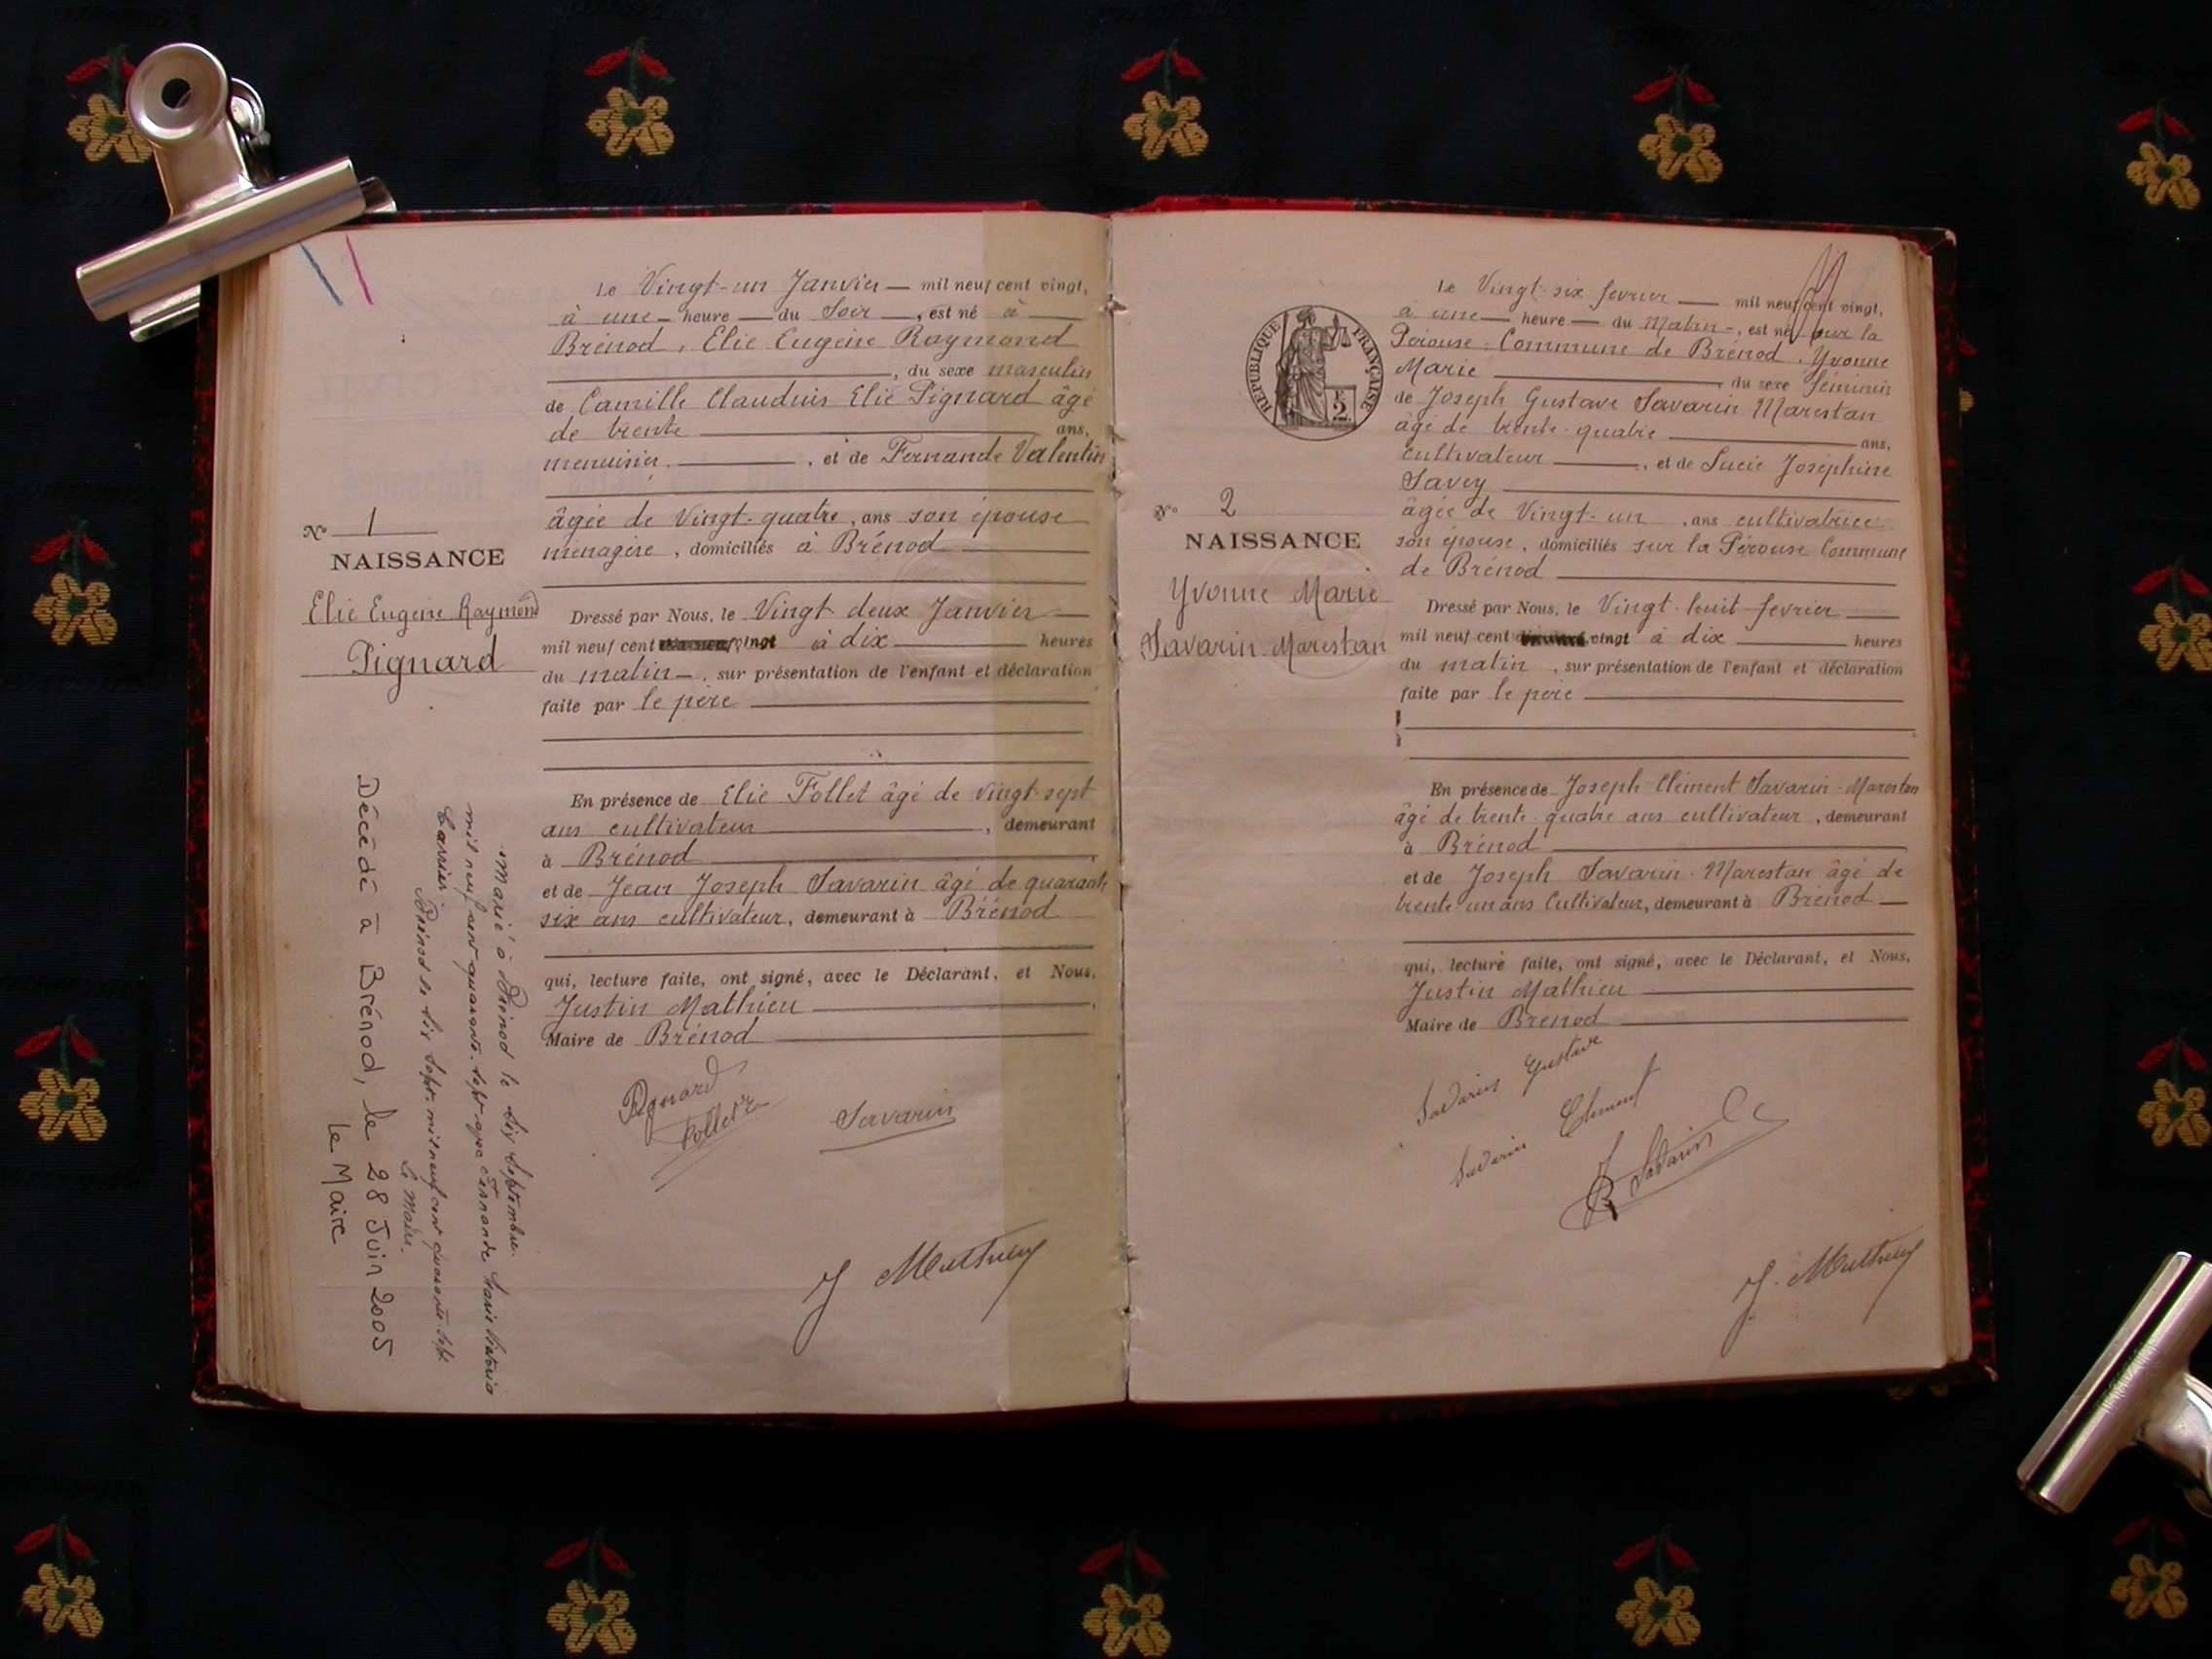 Le Vingt-un Janvier — mil neuf cent vingt,
à une — heure — du Soir —, est né à
Brénod, Elie Eugène Raymond
, du sexe masculin
de Camille Claudius Elie Pignard âgé
de trente ans,
menuisier, et de Fernande Valentin
âgée de Vingt-quatre, ans son épouse
ménagère, domiciliés à Brénod
Dressé par Nous, le Vingt deux Janvier
mil neuf cent vingt à dix heures
du matin —, sur présentation de l'enfant et déclaration
faite par le père
En présence de Elie Follet âgé de vingt-sept
ans cultivateur, demeurant
à Brénod
et de Jean Joseph Savarin âgé de quarante
six ans cultivateur, demeurant à Brénod
qui, lecture faite, ont signé, avec le Déclarant, et Nous,
Justin Mathieu
Maire de Brénod
Pignard
Follet
Savarin
J Mathieu
N° 1
NAISSANCE
Elie Eugène Raymond
Pignard
Marié à Brénod le dix Septembre
mil neuf cent quarante-sept avec Fernande Marie
Carrier. Brénod le dix Sept. mil neuf cent quarante sept
Le Maire.
Décédé à Brénod, le 28 Juin 2005
Le Maire
RÉPUBLIQUE FRANÇAISE
2
N° 2
NAISSANCE
Yvonne Marie
Savarin-Marestan
Le Vingt-six fevrier — mil neuf cent vingt,
à une — heure — du Matin —, est né sur la
Pérouse Commune de Brénod, Yvonne
Marie, du sexe féminin
de Joseph Gustave Savarin Marestan
âgé de trente-quatre ans,
cultivateur, et de Lucie Joséphine
Savey
âgée de Vingt-un, ans cultivatrice
son épouse, domiciliés sur la Pérouse Commune
de Brénod
Dressé par Nous, le Vingt-huit fevrier
mil neuf cent vingt à dix heures
du matin, sur présentation de l'enfant et déclaration
faite par le père
En présence de Joseph Clément Savarin-Marestan
âgé de trente-quatre ans cultivateur, demeurant
à Brénod
et de Joseph Savarin-Marestan âgé de
trente-un ans Cultivateur, demeurant à Brénod —
qui, lecture faite, ont signé, avec le Déclarant, et Nous,
Justin Mathieu
Maire de Brénod
Savarin Gustave
Savarin Clément
J Savarin
J. Mathieu